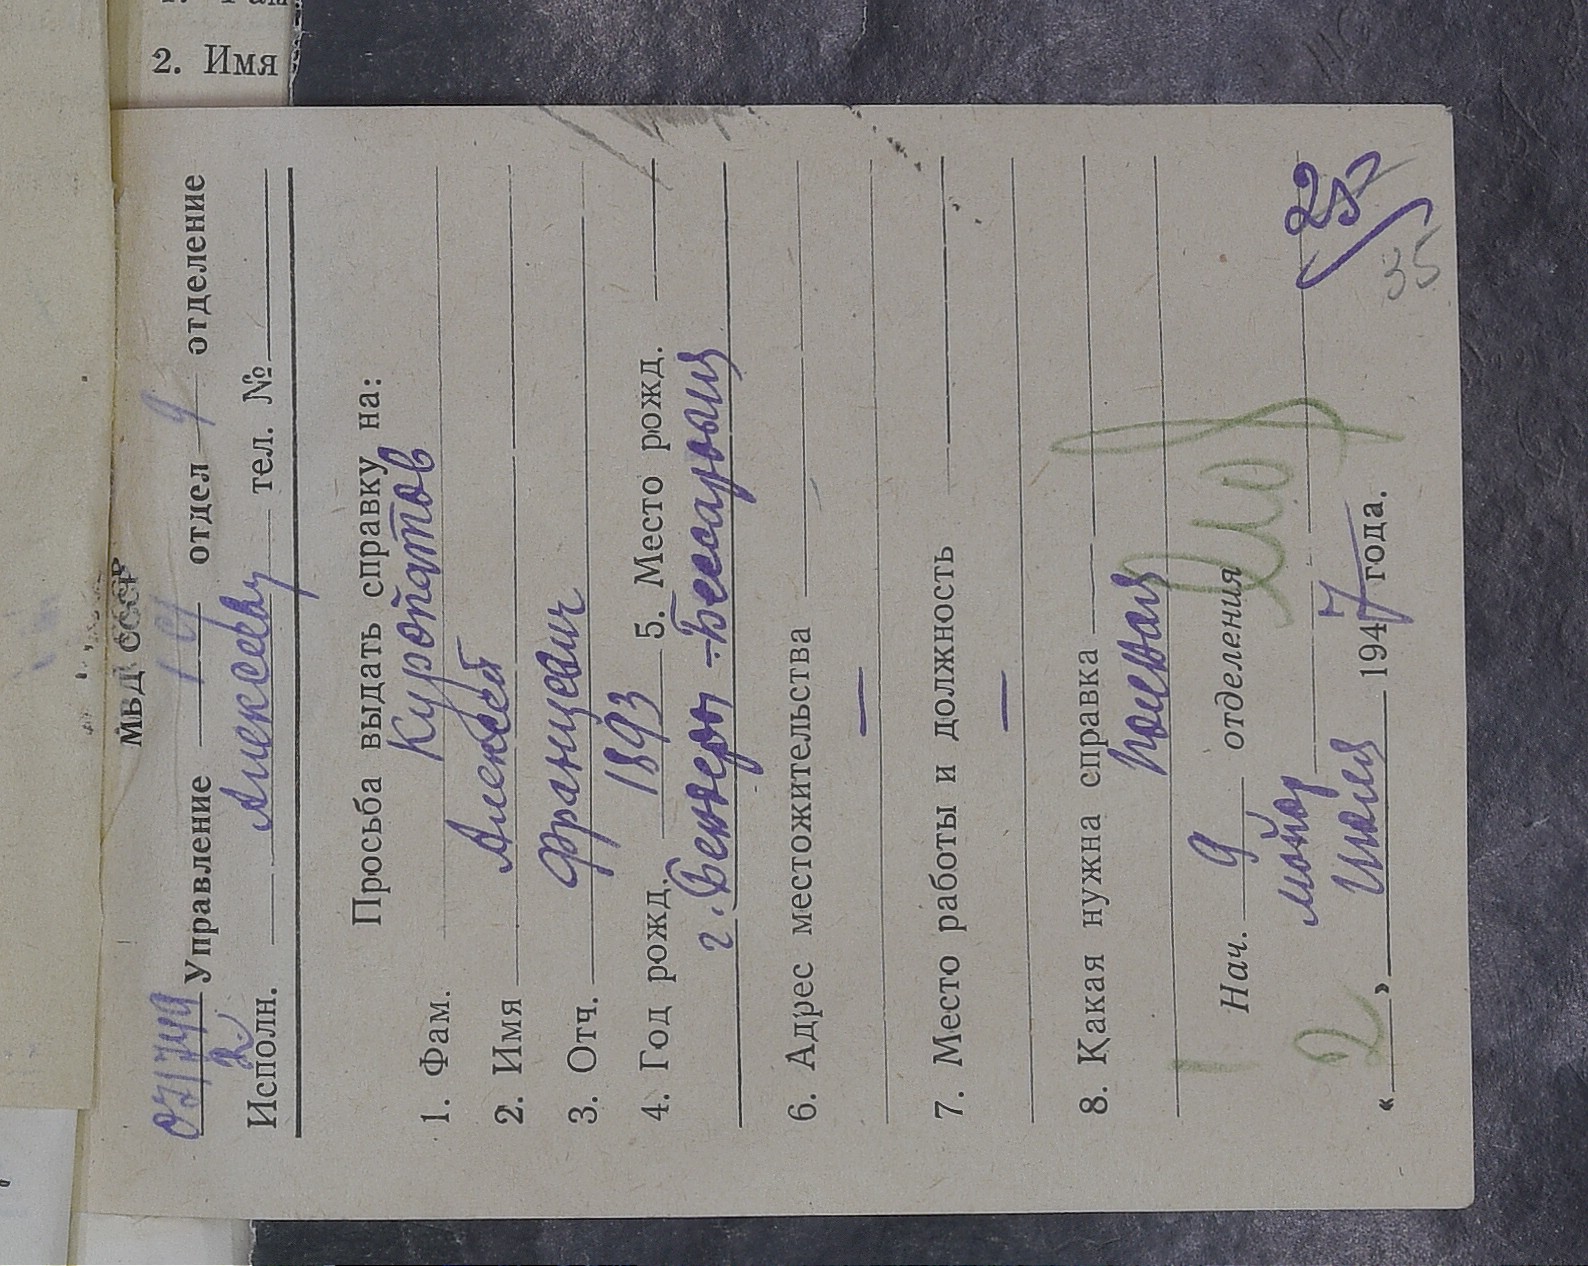 2. Имя
МВД СССР
Управление отдел 9 отделение
Исполн. Алексеев тел. №
Просьба выдать справку на:
1. Фам. Куропатов
2. Имя Алексей
3. Отч. Францевич
4. Год рожд. 1893 5. Место рожд.
г. Бендеры - Бессарабия
6. Адрес местожительства
—
7. Место работы и должность
—
8. Какая нужна справка полная
Нач. 9 отделения
майор
« 2 » июля 1947 года.
25
35